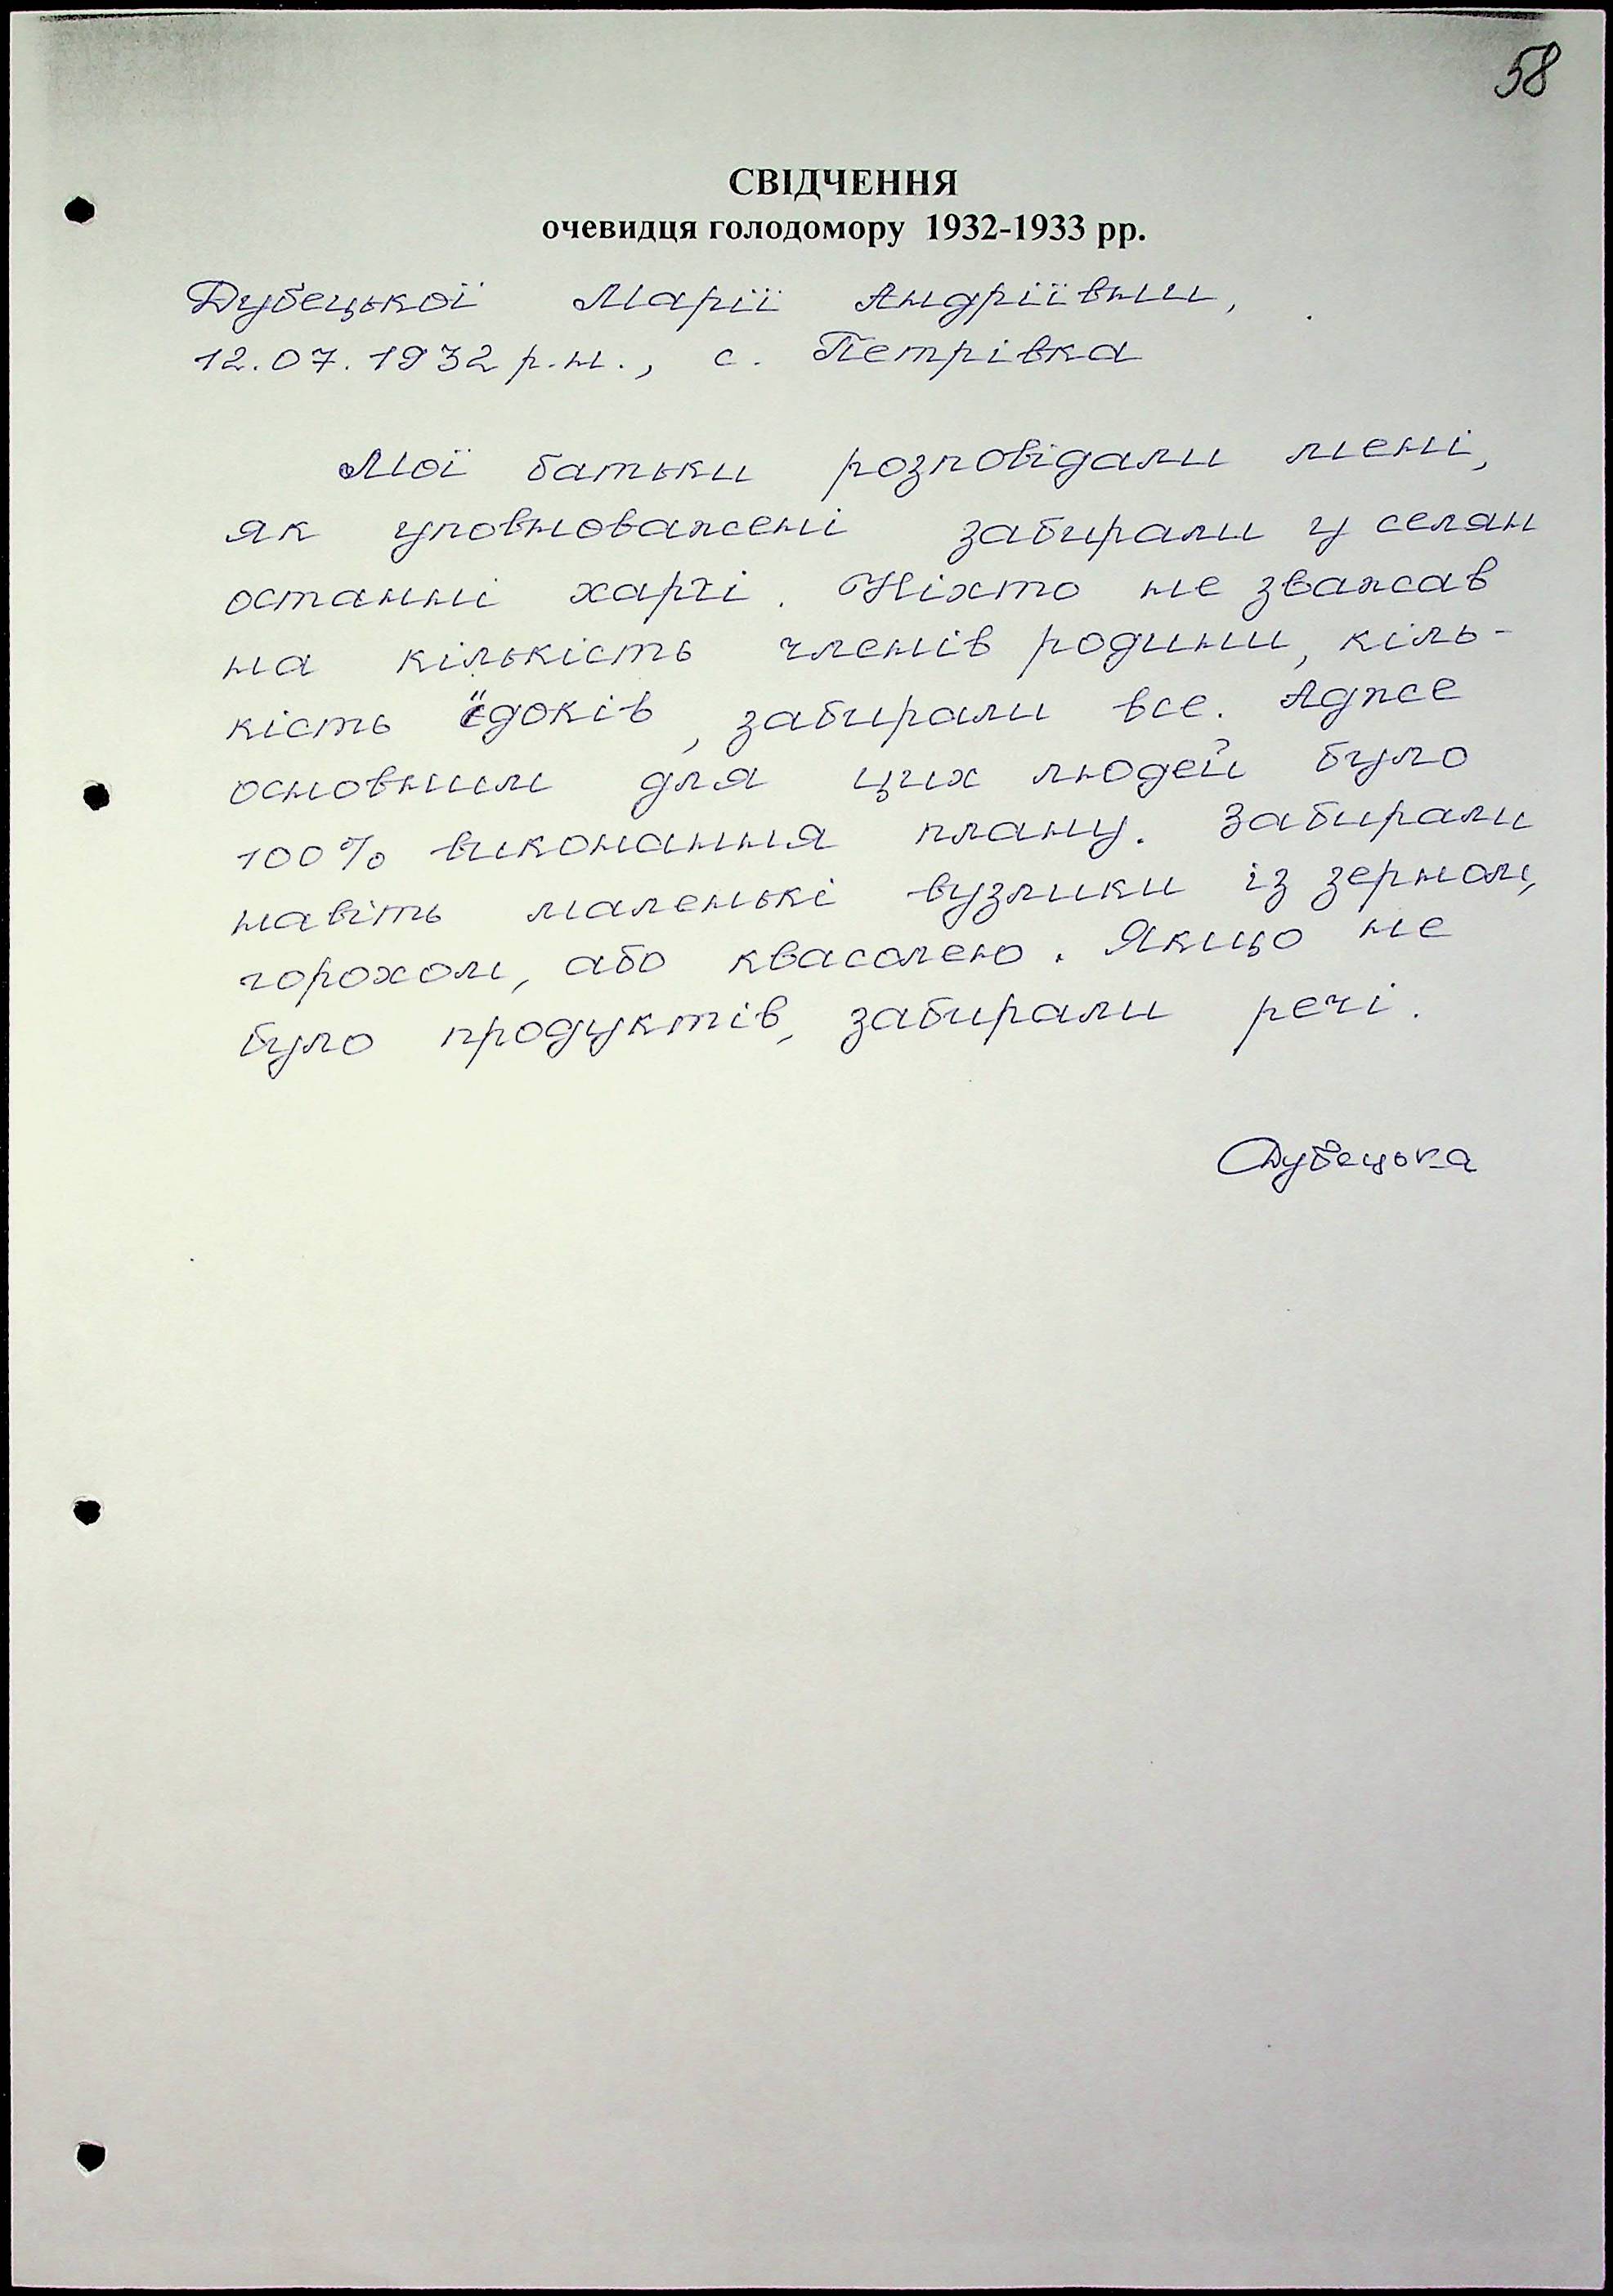 58
СВІДЧЕННЯ
очевидця голодомору 1932-1933 рр.
Дубецької Марії Андріївни,
12.07.1932 р.н., с. Петрівка
Мої батьки розповідали мені,
як уповноважені забирали у селян
останні харчі. Ніхто не зважав
на кількість членів родини, кіль-
кість їдоків, забирали все. Адже
основним для цих людей було
100% виконання плану. Забирали
навіть маленькі вузлики із зерном,
горохом, або квасолею. Якщо не
було продуктів, забирали речі.
Дубецька